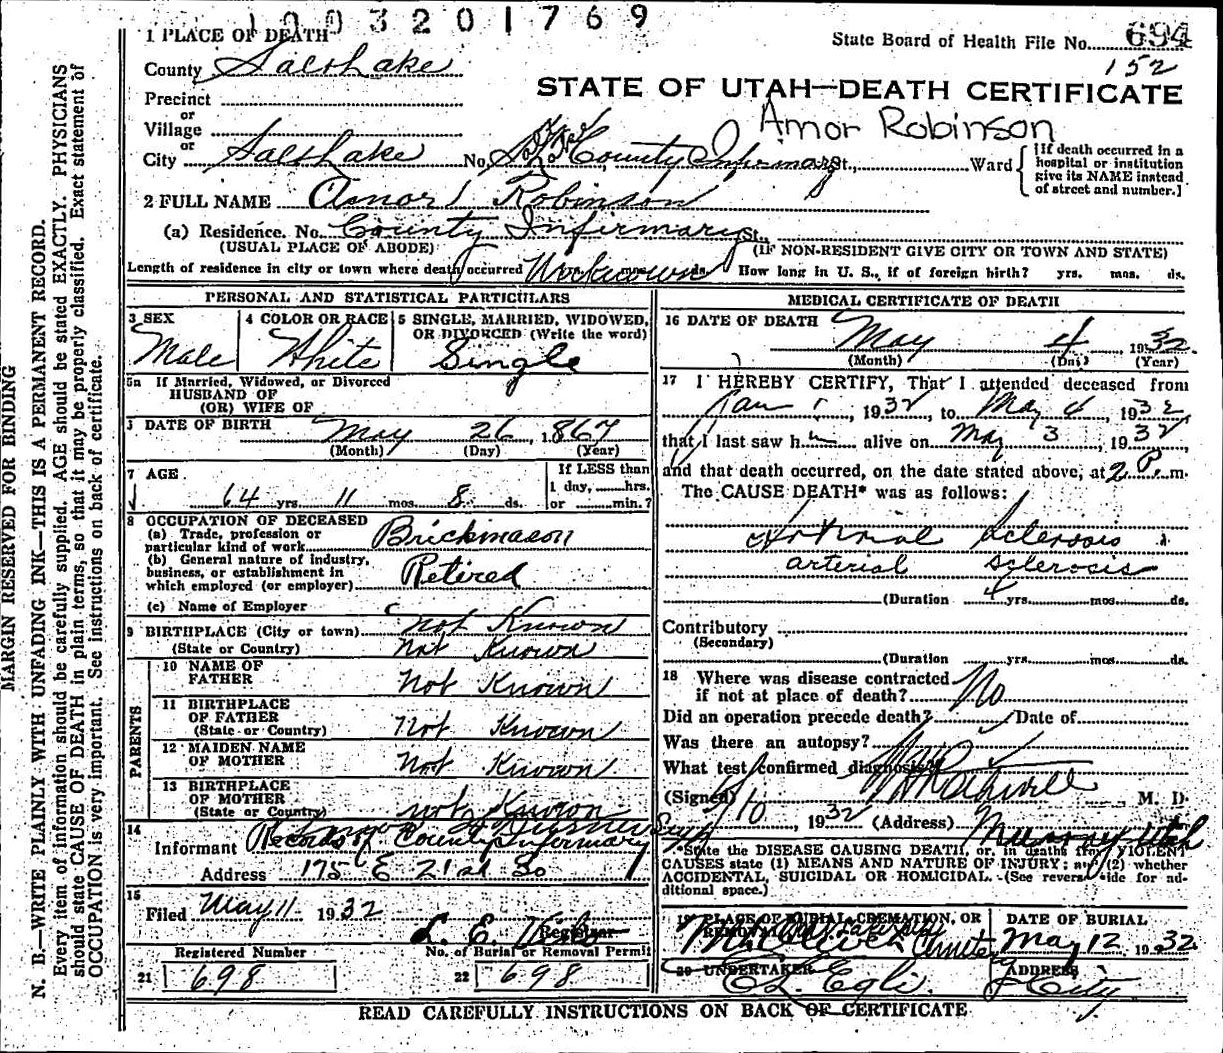 1003201769
1 PLACE OF DEATH
State Board of Health File No. 694
152
County Salt Lake
STATE OF UTAH—DEATH CERTIFICATE
Precinct
or
Village
Amor Robinson
or
City Salt Lake No. County Infirmary St., Ward
[If death occurred in a hospital or institution give its NAME instead of street and number.]
2 FULL NAME Amor Robinson
(a) Residence. No. County Infirmary St.,
(USUAL PLACE OF ABODE) (IF NON-RESIDENT GIVE CITY OR TOWN AND STATE)
Length of residence in city or town where death occurred mos. ds. How long in U. S., if of foreign birth? yrs. mos. ds.
PERSONAL AND STATISTICAL PARTICULARS
3 SEX
Male
4 COLOR OR RACE
White
5 SINGLE, MARRIED, WIDOWED,
OR DIVORCED (Write the word)
Single
5a If Married, Widowed, or Divorced
HUSBAND OF
(OR) WIFE OF
DATE OF BIRTH May 26, 1867
(Month) (Day) (Year)
7 AGE
64 yrs. 11 mos. 8 ds.
If LESS than
1 day, hrs.
or min.?
8 OCCUPATION OF DECEASED
(a) Trade, profession or
particular kind of work Brickmason
(b) General nature of industry,
business, or establishment in
which employed (or employer) Retired
(c) Name of Employer
9 BIRTHPLACE (City or town) not Known
(State or Country) Not Known
PARENTS
10 NAME OF
FATHER Not Known
11 BIRTHPLACE
OF FATHER
(State or Country) Not Known
12 MAIDEN NAME
OF MOTHER Not Known
13 BIRTHPLACE
OF MOTHER
(State or Country) not Known
14
Informant Records of County Infirmary
Address 175 E 21st So
15
Filed May 11 1932
Registrar
Registered Number
21 698
No. of Burial or Removal Permit
22 698
MEDICAL CERTIFICATE OF DEATH
16 DATE OF DEATH May 4 1932
(Month) (Day) (Year)
17 I HEREBY CERTIFY, That I attended deceased from
Jan 1, 1932, to May 4, 1932,
that I last saw h alive on May 3, 1932,
and that death occurred, on the date stated above, at 2 P. m.
The CAUSE DEATH* was as follows:
Arterial Sclerosis
arterial sclerosis
(Duration 4 yrs. mos. ds.
Contributory
(Secondary)
(Duration yrs. mos. ds.
18 Where was disease contracted
if not at place of death? No
Did an operation precede death? Date of
Was there an autopsy?
What test confirmed diagnosis?
(Signed) M. D.
5/10, 1932 (Address) Murray Utah
*State the DISEASE CAUSING DEATH, or, in deaths from VIOLENT
CAUSES state (1) MEANS AND NATURE OF INJURY; and (2) whether
ACCIDENTAL, SUICIDAL OR HOMICIDAL. (See reverse side for ad-
ditional space.)
19 PLACE OF BURIAL, CREMATION, OR
REMOVAL
Mt Olivet
DATE OF BURIAL
May 12, 1932
20 UNDERTAKER
Egli
ADDRESS
City
READ CAREFULLY INSTRUCTIONS ON BACK OF CERTIFICATE
MARGIN RESERVED FOR BINDING
N. B.—WRITE PLAINLY WITH UNFADING INK—THIS IS A PERMANENT RECORD.
Every item of information should be carefully supplied. AGE should be stated EXACTLY. PHYSICIANS
should state CAUSE OF DEATH in plain terms, so that it may be properly classified. Exact statement of
OCCUPATION is very important. See Instructions on back of certificate.